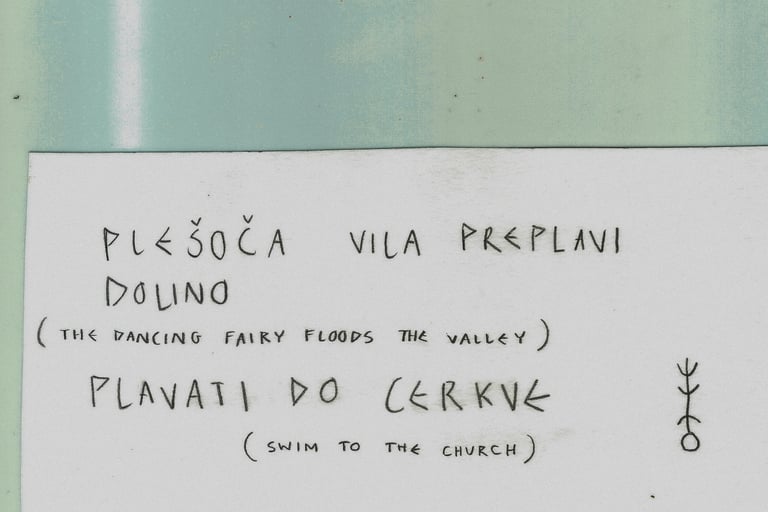 PLEŠOČA VILA PREPLAVI
DOLINO
(THE DANCING FAIRY FLOODS THE VALLEY)
PLAVATI DO CERKVE
(SWIM TO THE CHURCH)